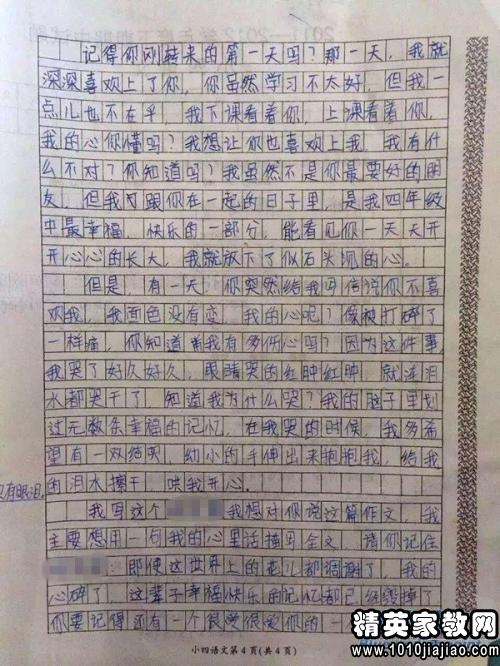 记得你刚转来的第一天吗？那一天，我就
深深喜欢上了你，你虽然学习不太好，但我一
点儿也不在乎，我下课看着你，上课看着你，
我的心你懂吗？我想让你也喜欢上我，我有什
么不对？你知道吗？我虽然不是你最要好的朋
友，但我跟你在一起的日子里，是我四年级
中最幸福，快乐的一部分，能看见你一天天开
开心心的长大，我就放下了似石头沉的心。
但是，有一天，你突然给我回信说你不喜
欢我，我面色没有变，我的心呢？像被打碎了
一样痛，你知道我有多伤心吗？因为这件事，
我哭了好久好久，眼睛哭的红肿红肿，就连泪
水都哭干了，知道我为什么哭？我的脑子里划
过无数条幸福的记忆，在我哭的时候，我多希
望有一双结实，幼小的手伸出来抱抱我，给我
只有眼泪。
的泪水擦干，哄我开心。
我写这个 我想对你说这篇作文，我
主要想用一句我的心里话描写全文，请你记住
即使这世界上的花儿都调谢了，我的
心碎了，这辈子幸福快乐的记忆都已经毁掉了
你要记得还有一个很爱很爱你的一
小四语文第4页(共4页)
精英家教网
www.1010jiajiao.com